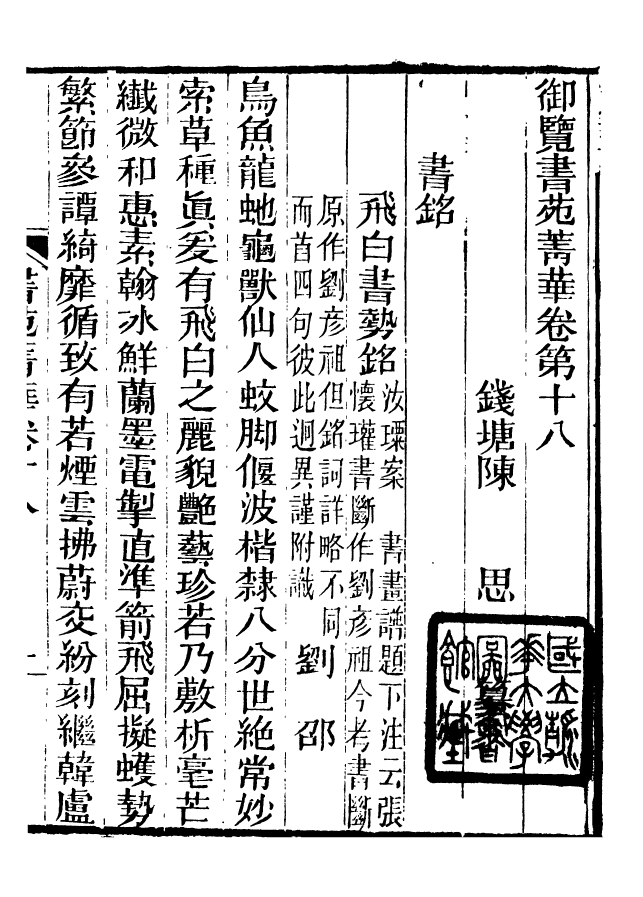 御覽書苑菁華卷第十八
錢塘陳 思
書銘
飛白書勢銘
汝瑮案 書畫譜題下注云張
懷瓘書斷作劉彥祖今考書斷
原作劉彥祖但銘詞詳略不同
而首四句彼此迥異謹附識
劉 邵
鳥魚龍虵龜獸仙人蛟脚偃波楷隸八分世絶常妙
索草種眞爰有飛白之麗貌艷藝珍若乃敷析毫芒
纎微和惠素翰冰鮮蘭墨電掣直準箭飛屈擬蠖勢
繁節參譚綺靡循致有若煙雲拂蔚交紛刻繼韓盧
書苑菁華卷十八
一
國立清
華大學
圖書
館藏